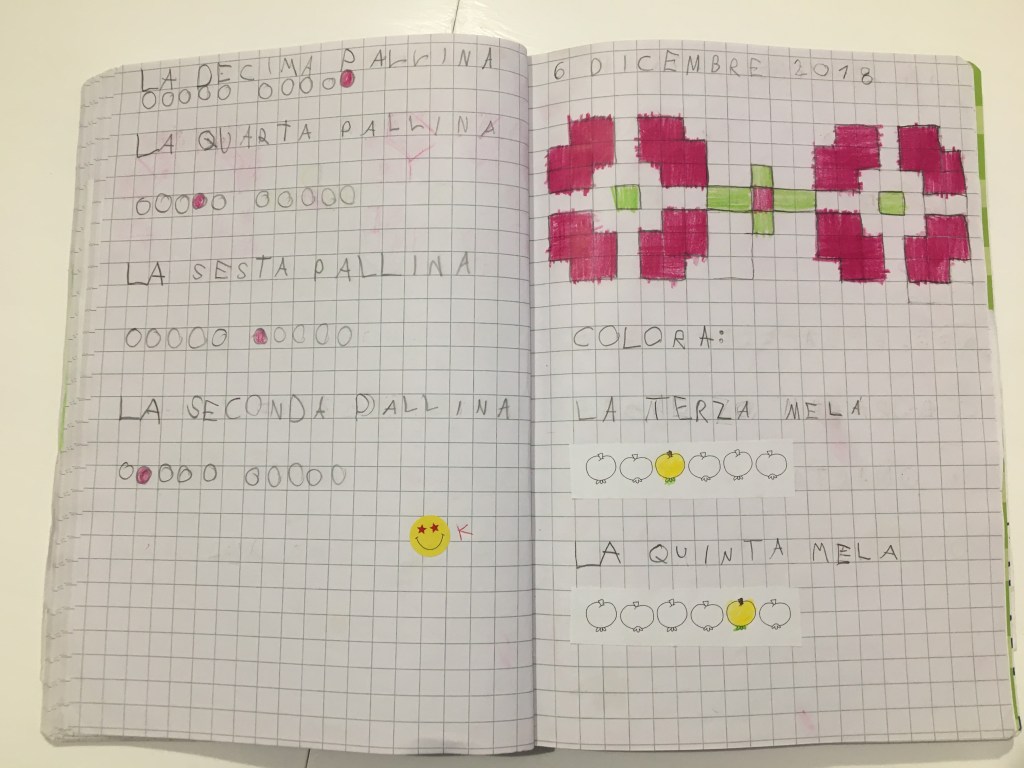 LA DECIMA PALLINA
LA QUARTA PALLINA
LA SESTA PALLINA
LA SECONDA PALLINA
K
6 DICEMBRE 2018
COLORA:
LA TERZA MELA
LA QUINTA MELA